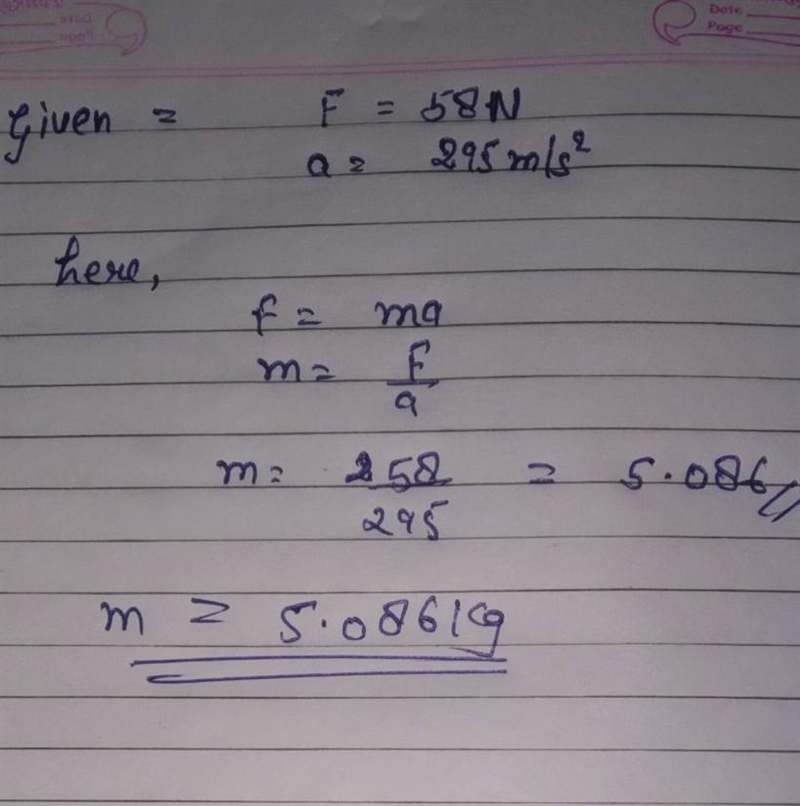 Date
Page
Given = F = 58N
a = 295 m/s²
here,
F = ma
m = F
a
m = 258 = 5.086
295
m = 5.086 Kg